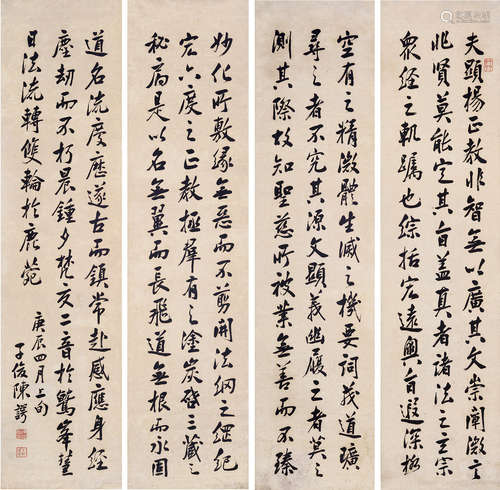 夫顯揚正教非智無以廣其文崇闡微言
非賢莫能定其旨盖真者諸法之玄宗
衆經之軌躅也綜括宏遠奧旨遐深極
空有之精微體生滅之機要詞茂道曠
尋之者不究其源文顯義幽履之者莫之
測其際故知聖慈所被業無善而不臻
妙化所敷緣無惡而不剪開法網之綱紀
宏六度之正教拯羣有之塗炭啓三藏之
秘扃是以名無翼而長飛道無根而永固
道名流慶歷遂古而鎮常赴感應身經
塵劫而不朽晨鍾夕梵交二音於鷲峯慧
日法流轉雙輪於鹿菀
庚辰四月上旬
子俊陳諤